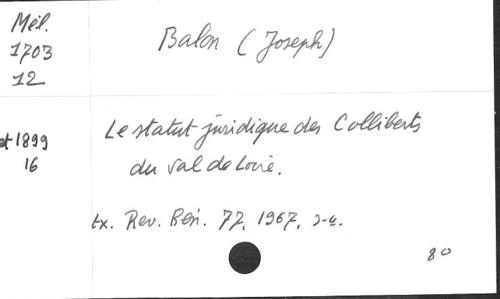 Mél.
1703
12
et 1899
16
Balon (Joseph)
Le statut juridique des Colliberts
du val de Loire.
Ex. Rev. Bén. 77, 1967,
80